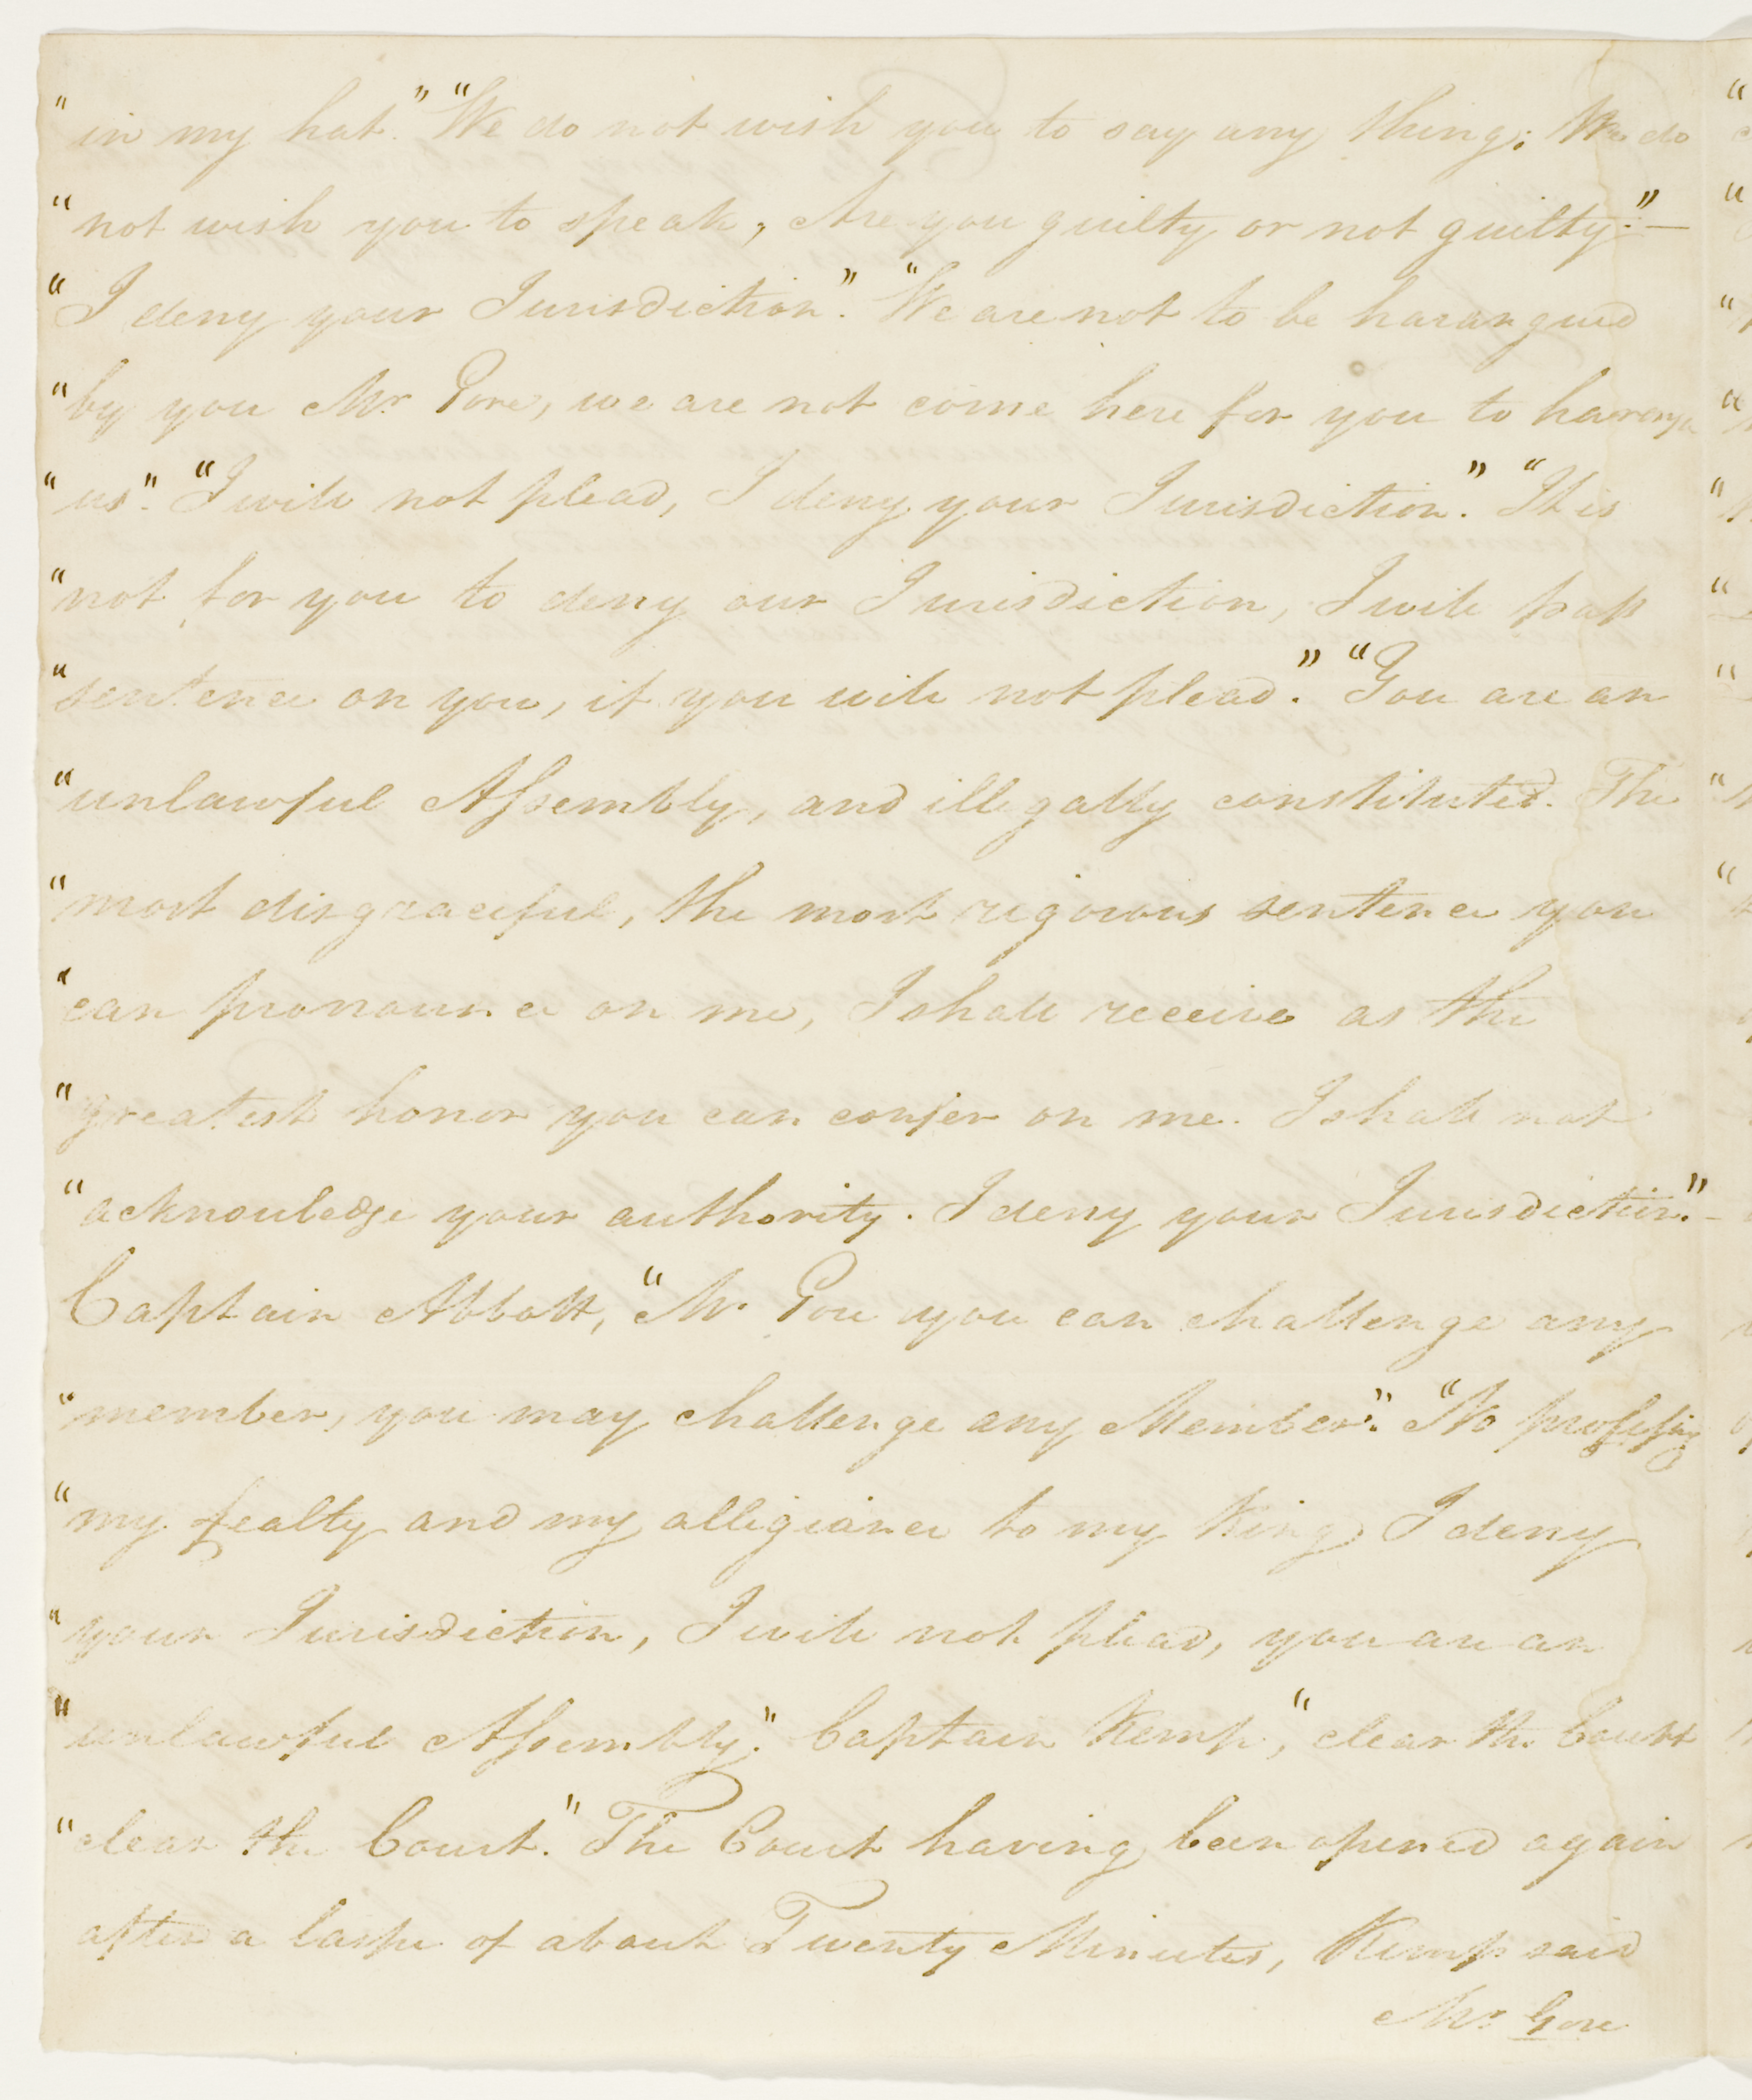 " in my hat." "We do not wish you to say any thing; We do
" not wish you to speak, Are you guilty or not guilty." —
" I deny your Jurisdiction." "We are not to be harangued
" by you Mr. Gore, we are not come here for you to harangue
" us". "I will not plead, I deny your Jurisdiction." "It is
" not for you to deny our Jurisdiction, I will pass
" sentence on you, if you will not plead." "You are an
" unlawful Assembly, and illegally constituted. The
" most disgraceful, the most rigorous sentence you
" can pronounce on me, I shall receive as the
" greatest honor you can confer on me. I shall not
" acknowledge your authority. I deny your Jurisdiction." —
Captain Abbott, "Mr. Gore you can challenge any
" member, you may challenge any Member." "No professing
" my fealty and my alligiance to my King I deny
" your Jurisdiction, I will not plead, you are an
" unlawful Assembly." Captain Kemp, "clear the Court
" clear the Court." The Court having been opened again
after a lapse of about Twenty Minutes, Kemp said
Mr. Gore